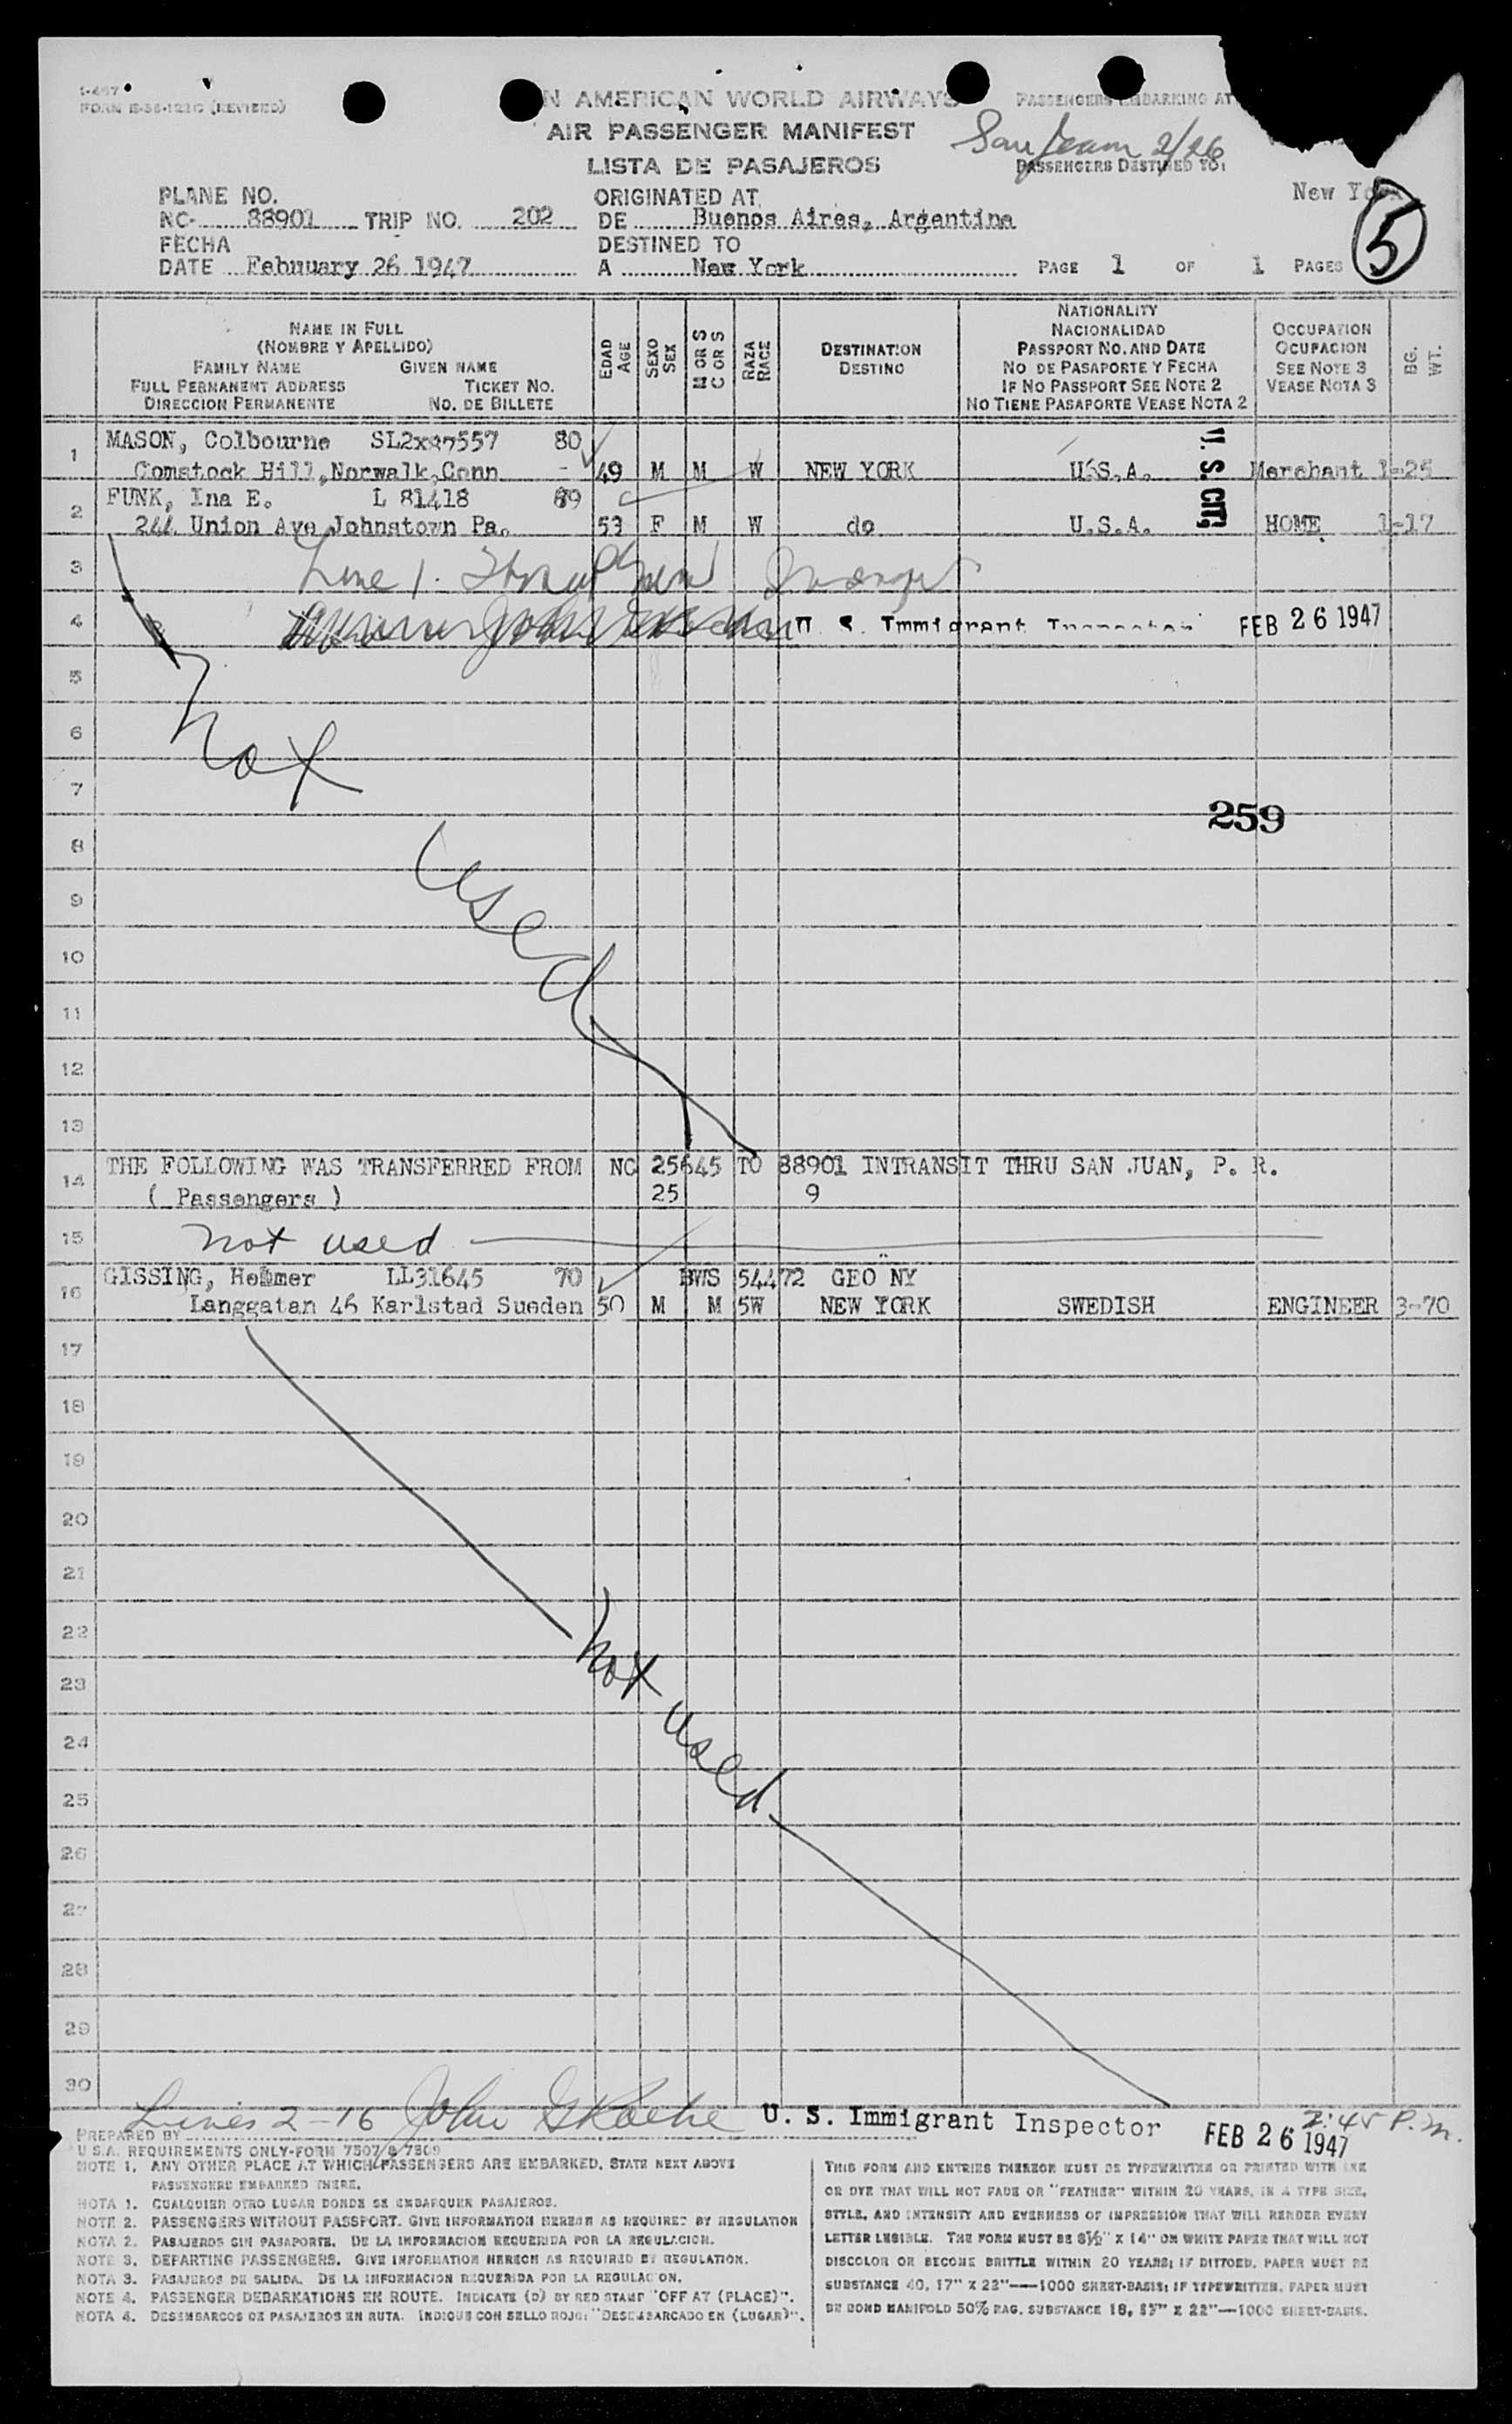 I-467
FORM E-56-121G (REVISED)
N AMERICAN WORLD AIRWAYS
AIR PASSENGER MANIFEST
LISTA DE PASAJEROS
PASSENGERS EMBARKING AT
San Juan 2/26
PASSENGERS DESTINED TO:
New York
5
PLANE NO.
NC- 88901 TRIP NO. 202
ORIGINATED AT
DE Buenos Aires, Argentina
FECHA
DATE Febnuary 26 1947
DESTINED TO
A New York
PAGE 1 OF 1 PAGES
NAME IN FULL
(NOMBRE Y APELLIDO)
FAMILY NAME GIVEN NAME
FULL PERMANENT ADDRESS TICKET NO.
DIRECCION PERMANENTE NO. DE BILLETE
EDAD
AGE
SEXO
SEX
M OR S
C OR S
RAZA
RACE
DESTINATION
DESTINO
NATIONALITY
NACIONALIDAD
PASSPORT NO. AND DATE
NO DE PASAPORTE Y FECHA
IF NO PASSPORT SEE NOTE 2
NO TIENE PASAPORTE VEASE NOTA 2
OCCUPATION
OCUPACION
SEE NOTE 3
VEASE NOTA 3
BG.
WT.
1 MASON, Colbourne 80
Comstock Hill, Norwalk, Conn - 49 M M W NEW YORK U.S.A. Merchant 1-25
U. S. CIT.
2 FUNK, Ina E. L 81418
244 Union Ave Johnstown Pa. 53 F M W do U.S.A. HOME 1-17
3 Line 1.
4 U. S. Immigrant Inspector FEB 26 1947
5
6
not
7
259
8
used
9
10
11
12
13
14 THE FOLLOWING WAS TRANSFERRED FROM NC 25645 TO 88901 INTRANSIT THRU SAN JUAN, P. R.
( Passengers ) 25 9
15 not used
16 GISSING, Helmer LL31645 70 BWS 54472 GEO NY
Langgatan 46 Karlstad Sueden 50 M M 5W NEW YORK SWEDISH ENGINEER 3-70
17
18
19
20
21
22
not used
23
24
25
26
27
28
29
30
Lines 2-16 John U. S. Immigrant Inspector FEB 26 1947 2:45 P.m.
PREPARED BY
U.S.A. REQUIREMENTS ONLY-FORM 7507 & 7509
NOTE 1. ANY OTHER PLACE AT WHICH PASSENGERS ARE EMBARKED, STATE NEXT ABOVE
PASSENGERS EMBARKED THERE.
NOTA 1. CUALQUIER OTRO LUGAR DONDE SE EMBARQUEN PASAJEROS.
NOTE 2. PASSENGERS WITHOUT PASSPORT. GIVE INFORMATION HEREON AS REQUIRED BY REGULATION
NOTA 2. PASAJEROS SIN PASAPORTE. DE LA INFORMACION REQUERIDA POR LA REGULACION.
NOTE 3. DEPARTING PASSENGERS. GIVE INFORMATION HEREON AS REQUIRED BY REGULATION.
NOTA 3. PASAJEROS DE SALIDA. DE LA INFORMACION REQUERIDA POR LA REGULACION.
NOTE 4. PASSENGER DEBARKATIONS EN ROUTE. INDICATE (D) BY RED STAMP "OFF AT (PLACE)".
NOTA 4. DESEMBARCOS DE PASAJEROS EN RUTA. INDIQUE CON SELLO ROJO: "DESEMBARCADO EN (LUGAR)".
THIS FORM AND ENTRIES THEREON MUST BE TYPEWRITTEN OR PRINTED WITH INK
OR DYE THAT WILL NOT FADE OR "FEATHER" WITHIN 20 YEARS, IN A TYPE SIZE,
STYLE, AND INTENSITY AND EVENNESS OF IMPRESSION THAT WILL RENDER EVERY
LETTER LEGIBLE. THE FORM MUST BE 8½" X 14" ON WHITE PAPER THAT WILL NOT
DISCOLOR OR BECOME BRITTLE WITHIN 20 YEARS; IF DITTOED, PAPER MUST BE
SUBSTANCE 40, 17" X 22"—1000 SHEET-BASIS; IF TYPEWRITTEN, PAPER MUST
BE BOND MANIFOLD 50% RAG, SUBSTANCE 18, 17" X 22"—1000 SHEET-BASIS.